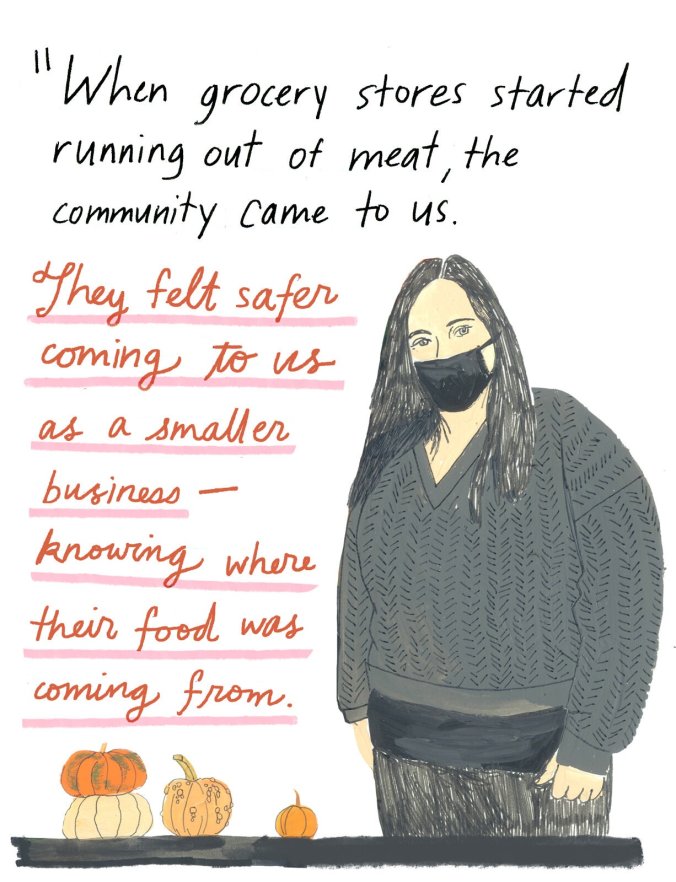 "When grocery stores started
running out of meat, the
community came to us.
They felt safer
coming to us
as a smaller
business —
knowing where
their food was
coming from.